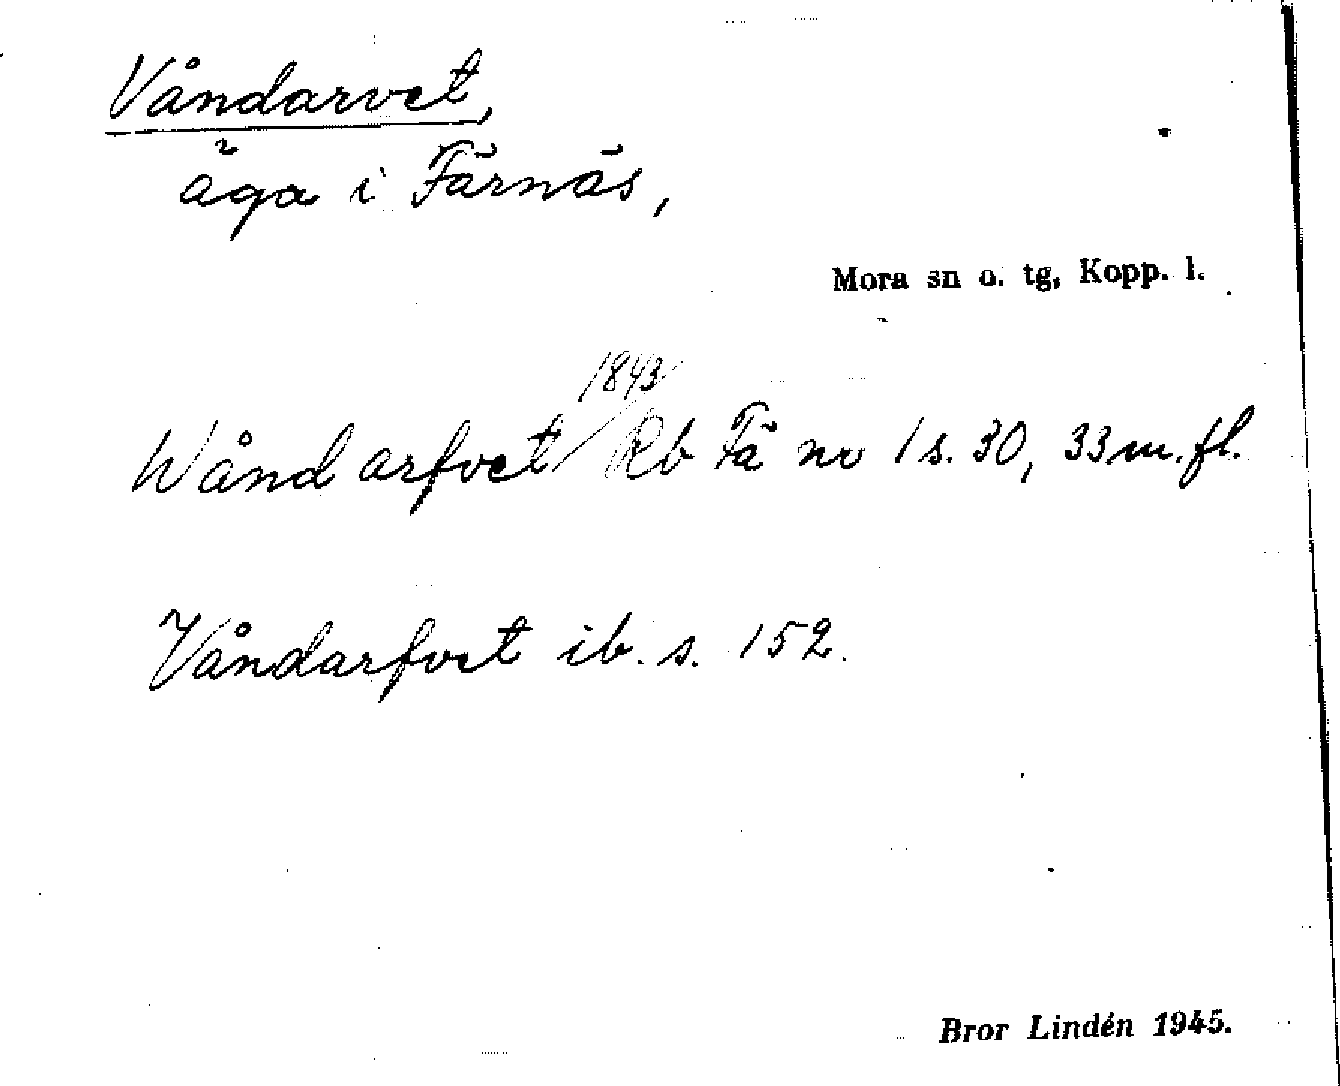 Våndarvet,
äga i Färnäs,
Mora sn o. tg, Kopp. l.
1843
Wånd arfvet Rb Fä nr 1 s. 30, 33 m. fl.
Våndarfvet ib. s. 152.
Bror Lindén 1945.